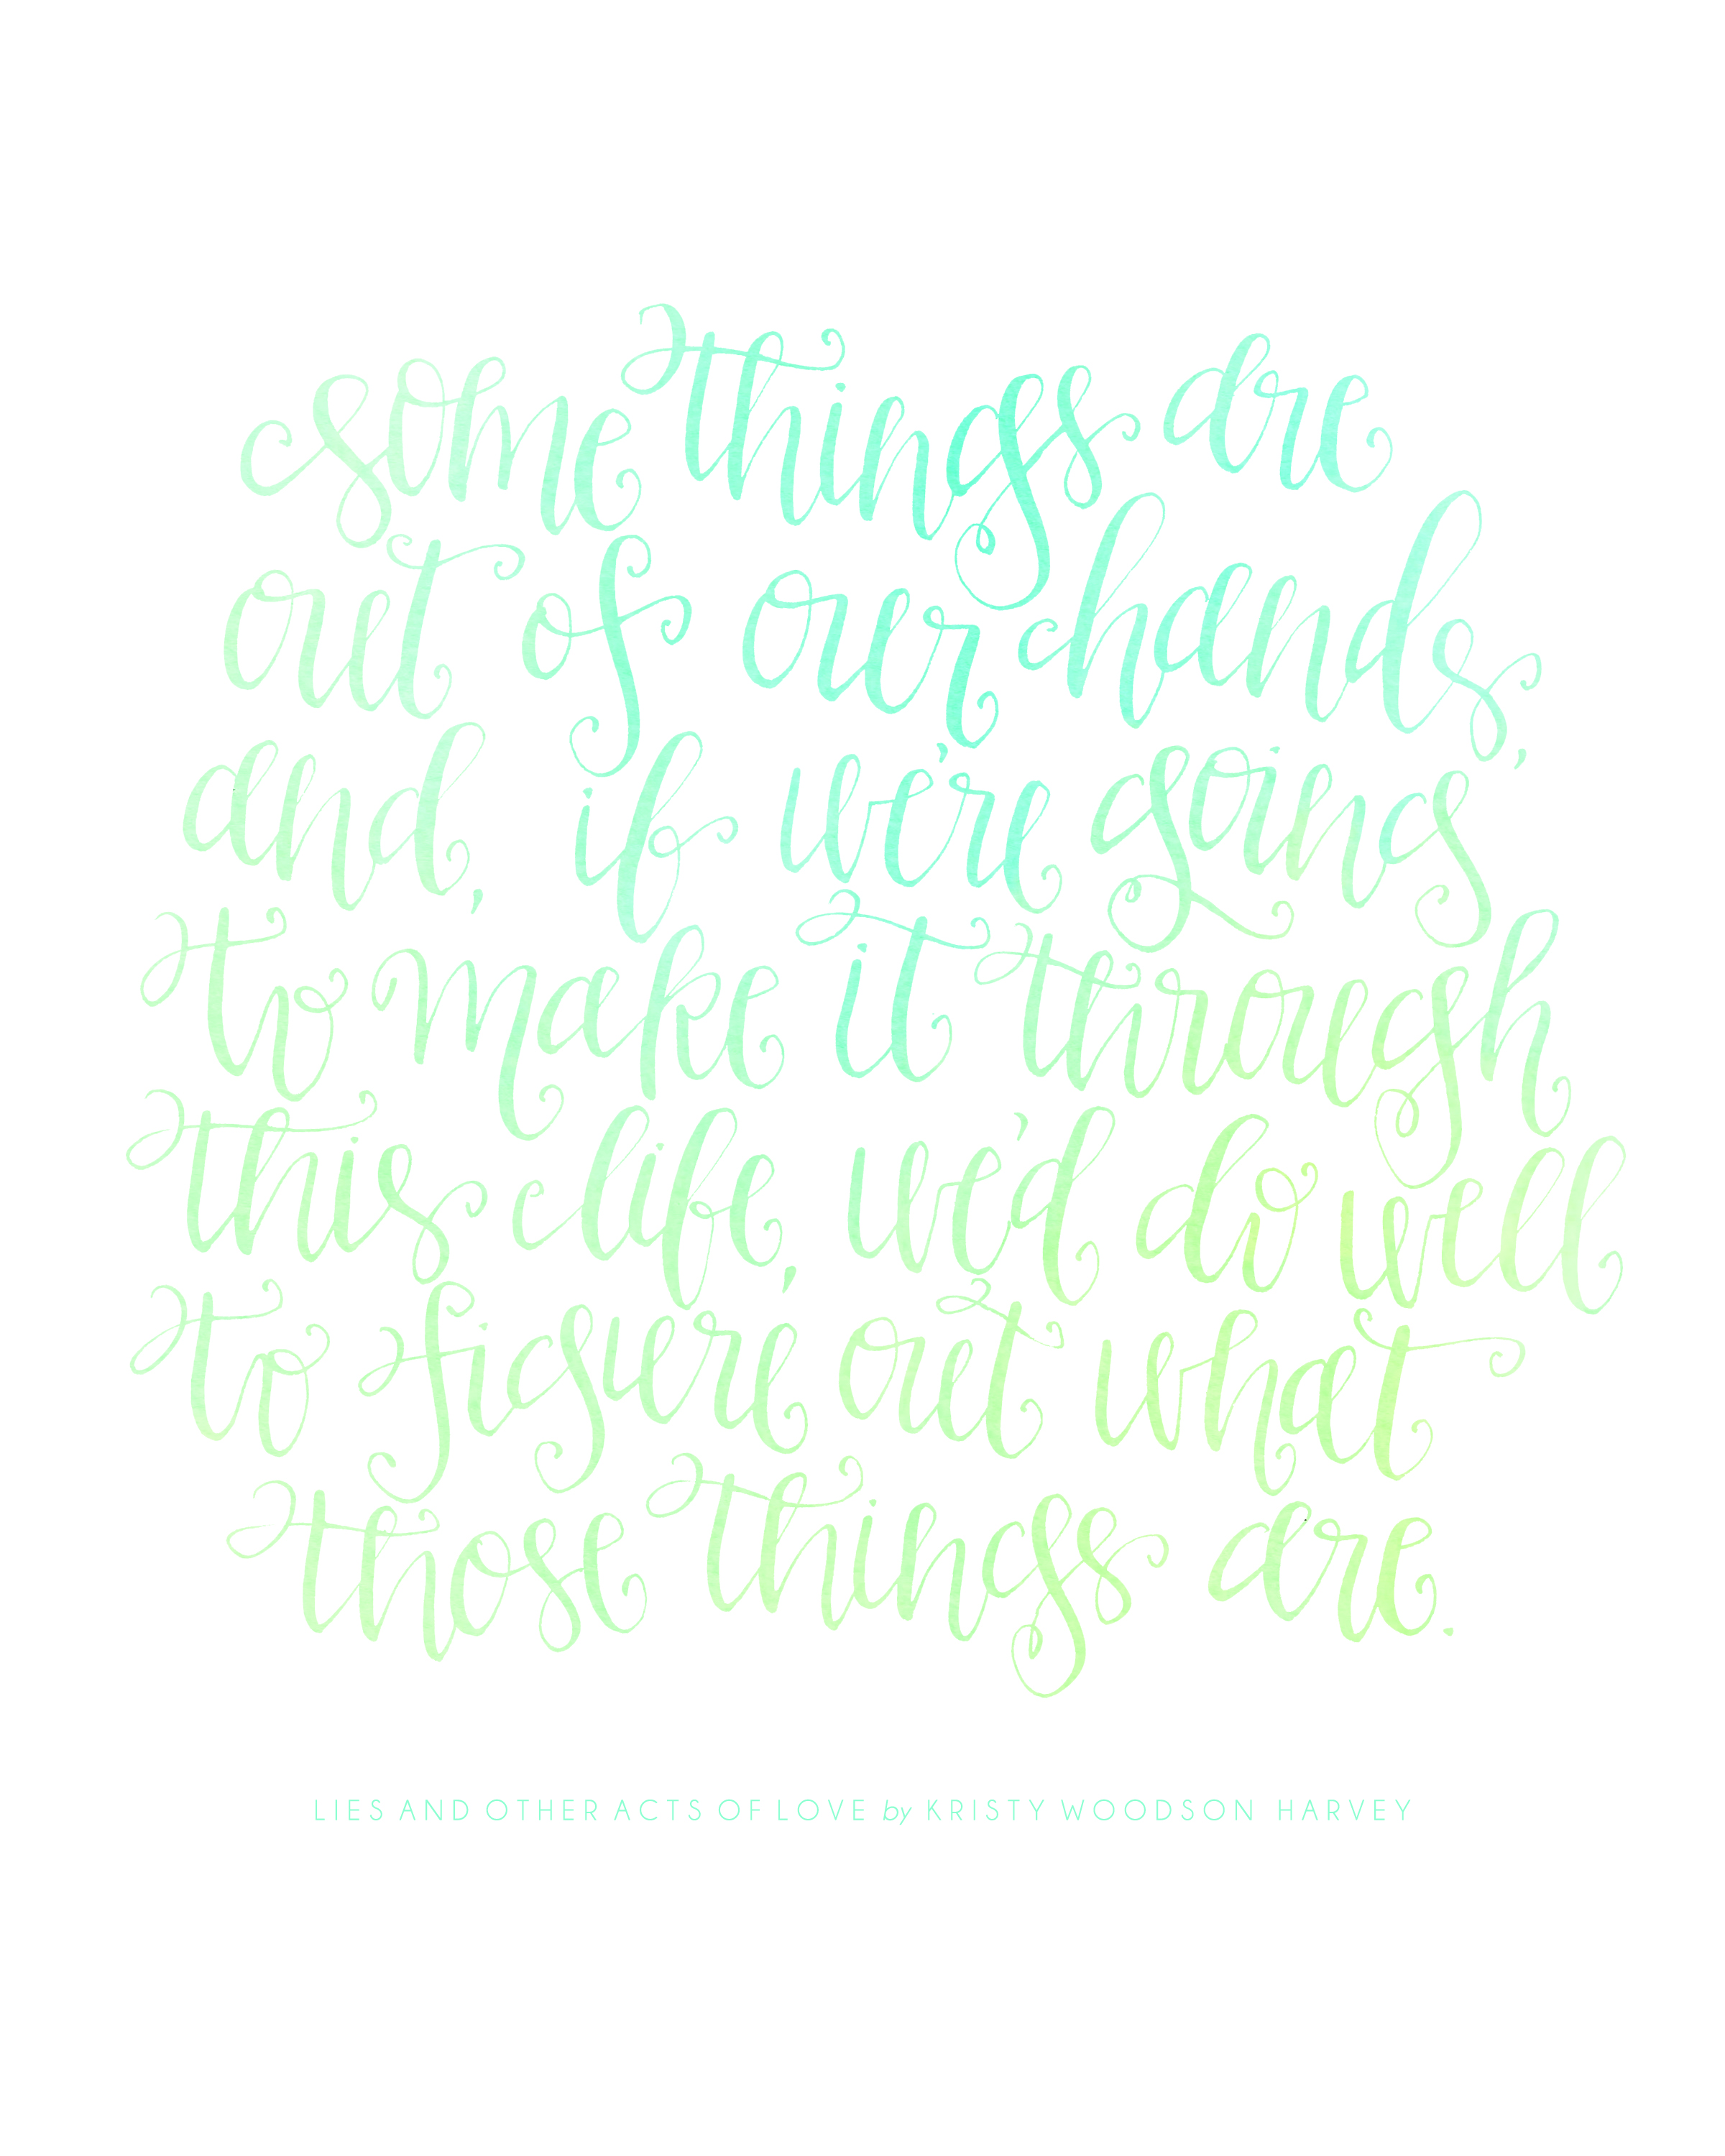 some things are
out of our hands,
and, if we're going
to make it through
this life, we'd do well
to figure out what
those things are.
LIES AND OTHER ACTS OF LOVE by KRISTY WOODSON HARVEY